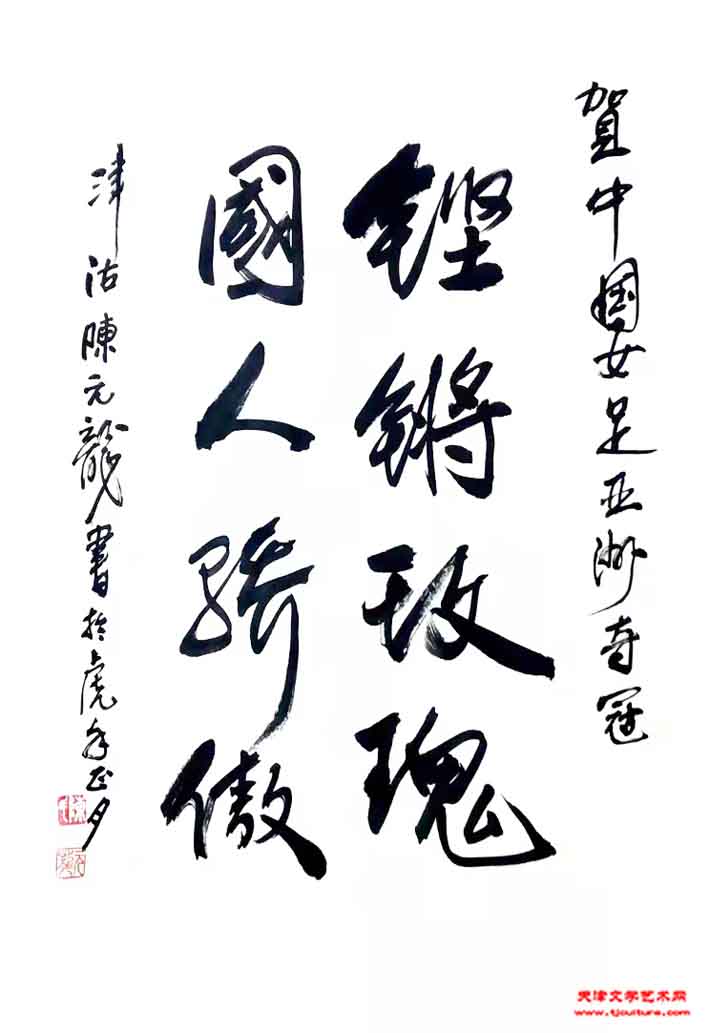 賀中国女足亚洲夺冠
铿锵玫瑰
國人骄傲
津沽陳元龍書於虎年正月
天津文学艺术网
www.tjculture.com